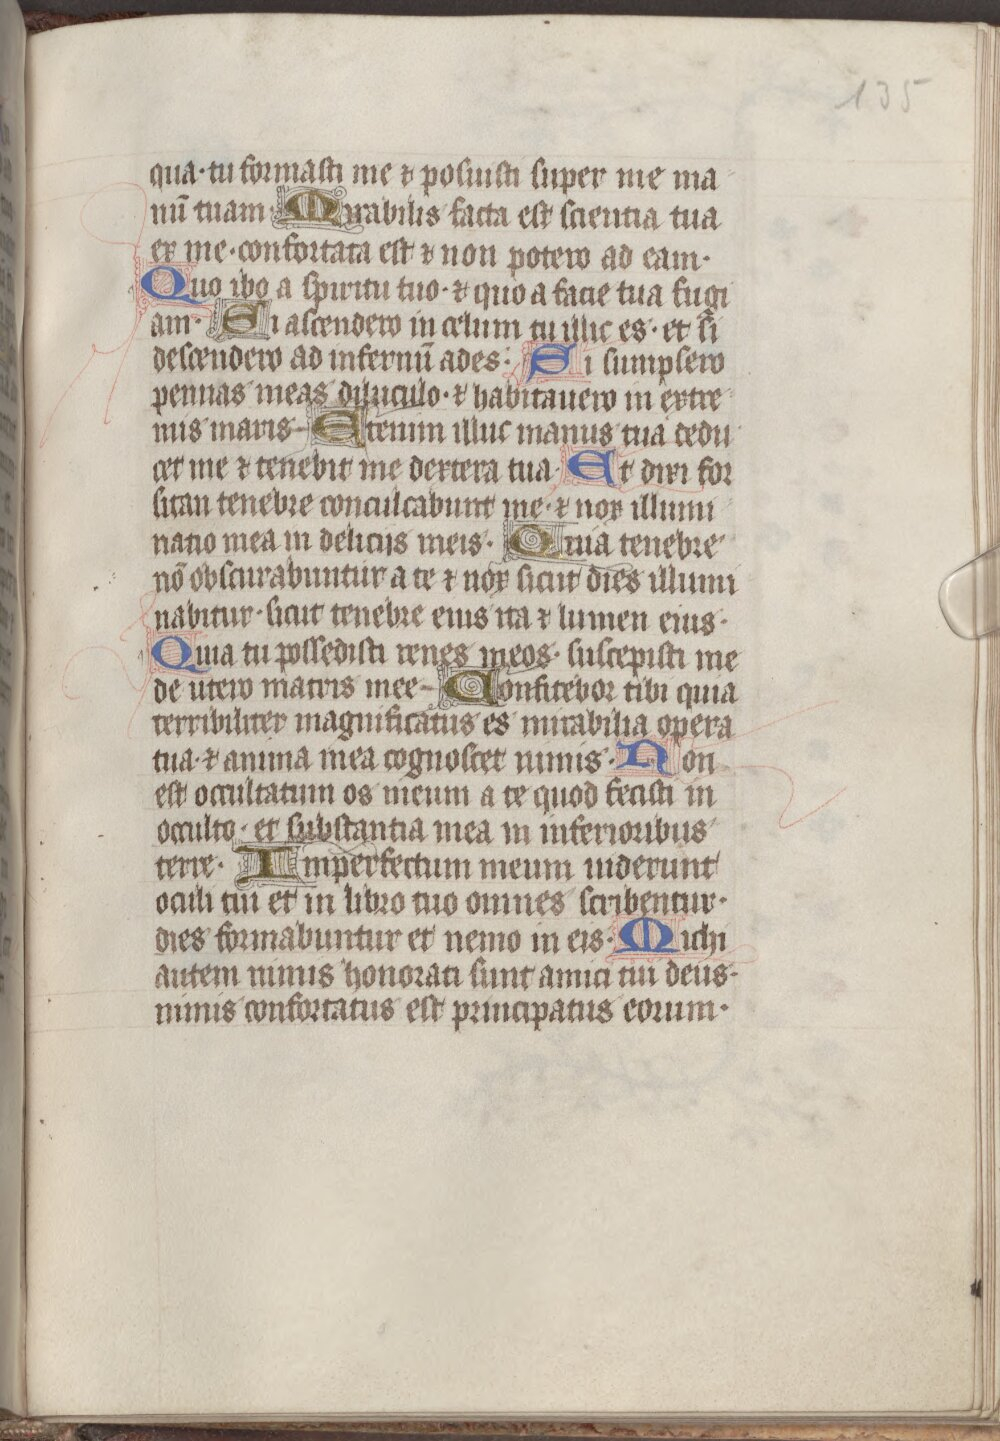 135
qua·tu formasti me ⁊ posuisti super me ma
nū tuam· Mirabilis facta est scientia tua
ex me·confortata est ⁊ non potero ad eam·
Quo ibo a spiritu tuo·⁊ quo a facie tua fugi
am· Si ascendero in celum tu illic es·et si
descendero ad infernū ades: Si sumpsero
pennas meas diluculo·⁊ habitauero in extre
mis maris Etenim illuc manus tua dedu
cet me ⁊ tenebit me dextera tua· Et dixi for
sitan tenebre conculcabunt me·⁊ nox illumi
natio mea in deliciis meis· Quia tenebre
nō obscurabuntur a te ⁊ nox sicut dies illumi
nabitur·sicut tenebre eius ita ⁊ lumen eius·
Quia tu possedisti renes meos·suscepisti me
de utero matris mee Confitebor tibi quia
terribiliter magnificatus es mirabilia opera
tua·⁊ anima mea cognoscet nimis· Non
est occultatum os meum a te quod fecisti in
occulto·et substantia mea in inferioribus
terre· Imperfectum meum uiderunt
oculi tui et in libro tuo omnes scribentur·
dies formabuntur et nemo in eis· Michi
autem nimis honorati sunt amici tui deus·
nimis confortatus est principatus eorum·